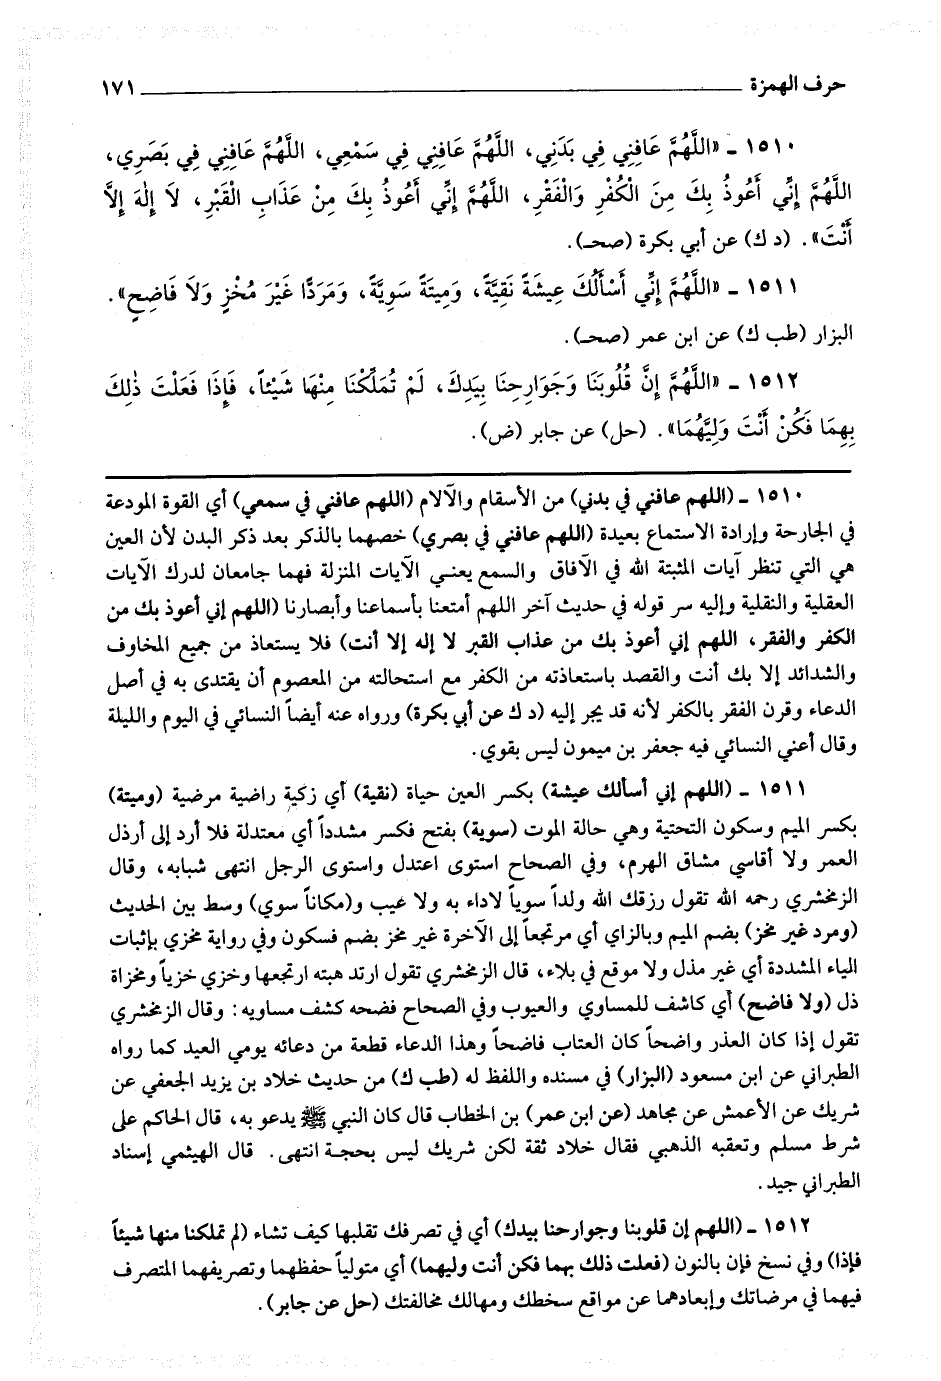 حرف الهمزة ١٧١
١٥١٠ ـ «اللَّهُمَّ عَافِنِي فِي بَدَنِي، اللَّهُمَّ عَافِنِي فِي سَمْعِي، اللَّهُمَّ عَافِنِي فِي بَصَرِي،
اللَّهُمَّ إِنِّي أَعُوذُ بِكَ مِنَ الْكُفْرِ وَالْفَقْرِ، اللَّهُمَّ إِنِّي أَعُوذُ بِكَ مِنْ عَذَابِ الْقَبْرِ، لَا إِلٰهَ إِلَّا
أَنْتَ». (د ك) عن أبي بكرة (صحـ).
١٥١١ ـ «اللَّهُمَّ إِنِّي أَسْأَلُكَ عِيشَةً نَقِيَّةً، وَمِيتَةً سَوِيَّةً، وَمَرَدًّا غَيْرَ مُخْزٍ وَلَا فَاضِحٍ».
البزار (طب ك) عن ابن عمر (صحـ).
١٥١٢ ـ «اللَّهُمَّ إِنَّ قُلُوبَنَا وَجَوَارِحَنَا بِيَدِكَ، لَمْ تُمَلِّكْنَا مِنْهَا شَيْئاً، فَإِذَا فَعَلْتَ ذٰلِكَ
بِهِمَا فَكُنْ أَنْتَ وَلِيَّهُمَا». (حل) عن جابر (ض).
١٥١٠ ـ (اللهم عافني في بدني) من الأسقام والآلام (اللهم عافني في سمعي) أي القوة المودعة
في الجارحة وإرادة الاستماع بعيدة (اللهم عافني في بصري) خصهما بالذكر بعد ذكر البدن لأن العين
هي التي تنظر آيات المثبتة الله في الآفاق والسمع يعنـي الآيات المنزلة فهما جامعان لدرك الآيات
العقلية والنقلية وإليه سر قوله في حديث آخر اللهم أمتعنا بأسماعنا وأبصارنا (اللهم إني أعوذ بك من
الكفر والفقر، اللهم إني أعوذ بك من عذاب القبر لا إله إلا أنت) فلا يستعاذ من جميع المخاوف
والشدائد إلا بك أنت والقصد باستعاذته من الكفر مع استحالته من المعصوم أن يقتدى به في أصل
الدعاء وقرن الفقر بالكفر لأنه قد يجر إليه (د ك عن أبي بكرة) ورواه عنه أيضاً النسائي في اليوم والليلة
وقال أعني النسائي فيه جعفر بن ميمون ليس بقوي.
١٥١١ ـ (اللهم إني أسألك عيشة) بكسر العين حياة (نقية) أي زكية راضية مرضية (وميتة)
بكسر الميم وسكون التحتية وهي حالة الموت (سوية) بفتح فكسر مشدداً أي معتدلة فلا أرد إلى أرذل
العمر ولا أقاسي مشاق الهرم، وفي الصحاح استوى اعتدل واستوى الرجل انتهى شبابه، وقال
الزمخشري رحمه الله تقول رزقك الله ولداً سوياً لاداء به ولا عيب و(مكاناً سوي) وسط بين الحديث
(ومرد غير مخز) بضم الميم وبالزاي أي مرتجعاً إلى الآخرة غير مخز بضم فسكون وفي رواية مخزي بإثبات
الياء المشددة أي غير مذل ولا موقع في بلاء، قال الزمخشري تقول ارتد هبته ارتجعها وخزي خزياً ومخزاة
ذل (ولا فاضح) أي كاشف للمساوي والعيوب وفي الصحاح فضحه كشف مساويه: وقال الزمخشري
تقول إذا كان العذر واضحاً كان العتاب فاضحاً وهذا الدعاء قطعة من دعائه يومي العيد كما رواه
الطبراني عن ابن مسعود (البزار) في مسنده واللفظ له (طب ك) من حديث خلاد بن يزيد الجعفي عن
شريك عن الأعمش عن مجاهد (عن ابن عمر) بن الخطاب قال كان النبي ﷺ يدعو به، قال الحاكم على
شرط مسلم وتعقبه الذهبي فقال خلاد ثقة لكن شريك ليس بحجة انتهى. قال الهيثمي إسناد
الطبراني جيد.
١٥١٢ ـ (اللهم إن قلوبنا وجوارحنا بيدك) أي في تصرفك تقلبها كيف تشاء (لم تملكنا منها شيئاً
فإذا) وفي نسخ فإن بالنون (فعلت ذلك بهما فكن أنت وليهما) أي متولياً حفظهما وتصريفهما المتصرف
فيهما في مرضاتك وإبعادهما عن مواقع سخطك ومهالك مخالفتك (حل عن جابر).